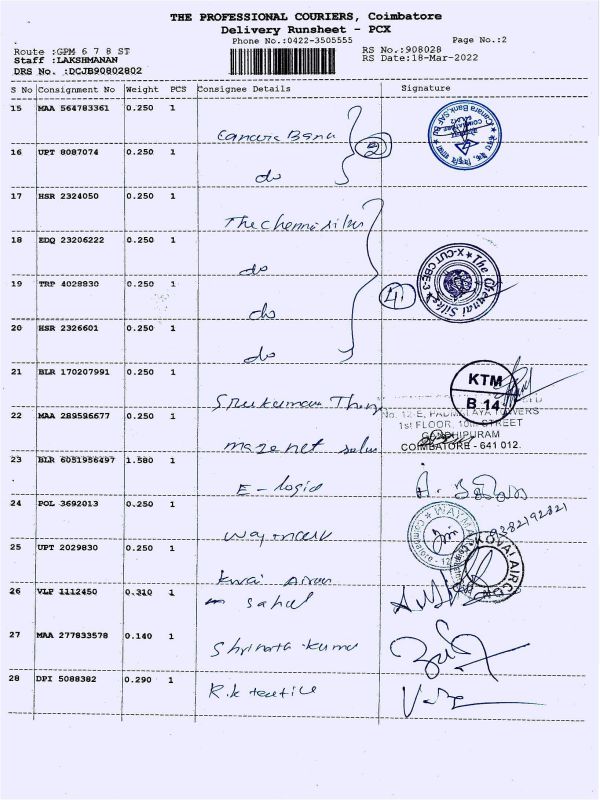 THE PROFESSIONAL COURIERS, Coimbatore
Delivery Runsheet - PCX
Phone No.:0422-3505555
Page No.:2
Route :GPM 6 7 8 ST
RS No.:908028
Staff :LAKSHMANAN
RS Date:18-Mar-2022
DRS No. :DCJB90802802
S No Consignment No Weight PCS Consignee Details Signature
15 MAA 564783361 0.250 1
Canara Bank
2
16 UPT 8087074 0.250 1
do
17 HSR 2324050 0.250 1
The Chennai silks
18 EDQ 23206222 0.250 1
do
The Chennai Silks X-CUT CBE-3
19 TRP 4028830 0.250 1
4
do
20 HSR 2326601 0.250 1
do
21 BLR 170207991 0.250 1
KTM
B 14
Sreekumaran
22 MAA 289596677 0.250 1
No. 12-E, PADMALAYA TOWERS
1st FLOOR, 10th STREET
GANDHIPURAM
COIMBATORE - 641 012.
mazenet
23 BLR 6051956497 1.580 1
E-logic
24 POL 3692013 0.250 1
waymark
WAYMARK
9382192821
25 UPT 2029830 0.250 1
KOVAI AIRCON
Kovai Aircon
26 VLP 1112450 0.310 1
27 MAA 277833578 0.140 1
28 DPI 5088382 0.290 1
R.k textile